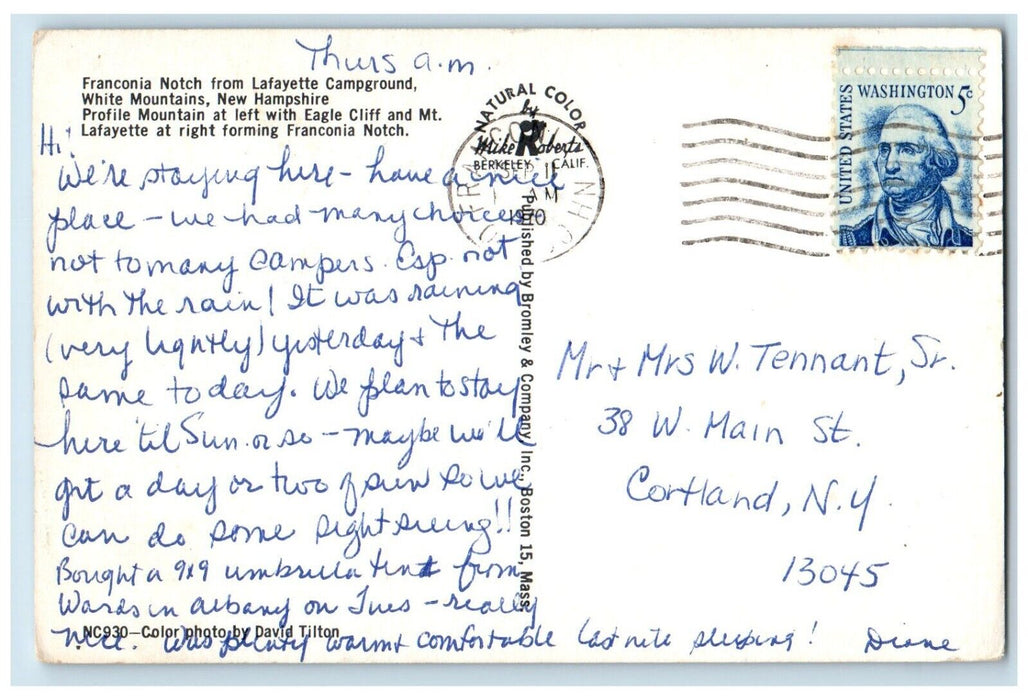 Thurs a.m.
Franconia Notch from Lafayette Campground,
White Mountains, New Hampshire
Profile Mountain at left with Eagle Cliff and Mt.
Lafayette at right forming Franconia Notch.
Hi!
We're staying here - have a nice
place - we had many choices
not to many campers. Esp. not
with the rain! It was raining
(very lightly) yesterday + the
same today. We plan to stay
here 'til Sun. or so - maybe we'll
get a day or two of sun so we
can do some sight seeing!!
Bought a 9x9 umbrella tent from
Wards in Albany on Tues - really
nice. Was plenty warm + comfortable last nite sleeping! Diane
NC930—Color photo by David Tilton
NATURAL COLOR
by
Mike Roberts
BERKELEY CALIF.
Published by Bromley & Company, Inc., Boston 15, Mass.
SEP
AM
1970
NH
UNITED STATES
WASHINGTON 5c
Mr + Mrs W. Tennant, Sr.
38 W. Main St.
Cortland, N.Y.
13045